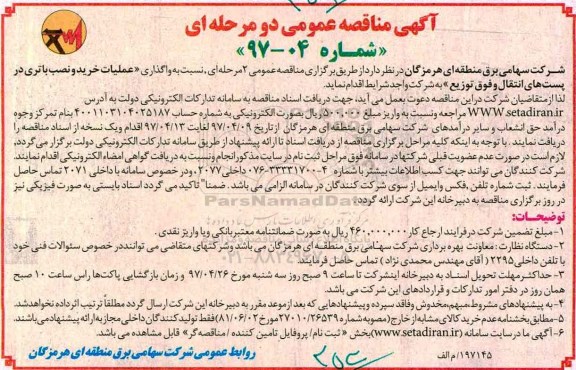 آگهی مناقصه عمومی دو مرحله ای
«شماره ۰۴-۹۷»
شرکت سهامی برق منطقه ای هرمزگان در نظر دارد از طریق برگزاری مناقصه عمومی ۲ مرحله ای، نسبت به واگذاری «عملیات خرید و نصب باتری در
پست های انتقال و فوق توزیع» به شرکت واجد شرایط اقدام نماید.
لذا از متقاضیان شرکت در این مناقصه دعوت بعمل می آید، جهت دریافت اسناد مناقصه به سامانه تدارکات الکترونیکی دولت به آدرس
WWW.setadiran.ir مراجعه و نسبت به واریز مبلغ ریال بصورت الکترونیکی به شماره حساب ۴۰۰۱۱۰۳۱۰۴۰۲۵۱۸۷ بنام تمرکز وجوه
درآمد حق انشعاب و سایر درآمدهای شرکت سهامی برق منطقه ای هرمزگان از تاریخ ۹۷/۰۴/۰۹ لغایت ۹۷/۰۴/۱۳ اقدام و یک نسخه از اسناد مناقصه را
دریافت نمایند. با توجه به اینکه کلیه مراحل برگزاری مناقصه از دریافت اسناد تا ارائه پیشنهاد از طریق سامانه تدارکات الکترونیکی دولت برگزار می گردد،
لازم است در صورت عدم عضویت قبلی شرکتها در سامانه فوق مراحل ثبت نام در سایت مذکور انجام و نسبت به دریافت گواهی امضاء الکترونیکی اقدام نمایند.
شرکت کنندگان می توانند جهت کسب اطلاعات بیشتر با شماره ۴-۳۳۳۳۱۷۰۰-۰۷۶ داخلی ۲۰۷۷ و در خصوص سامانه با داخلی ۲۰۷۱ تماس حاصل
فرمایند. ثبت شماره تلفن، فکس و ایمیل از سوی شرکت کنندگان در سامانه الزامی می باشد. ضمنا" تاکید می گردد اسناد بایستی به صورت فیزیکی نیز
در روز برگزاری مناقصه به دبیرخانه این شرکت ارائه گردد.
توضیحات:
۱- مبلغ تضمین شرکت در فرایند ارجاع کار ۴۶۰,۰۰۰,۰۰۰ ریال به صورت ضمانتنامه معتبر بانکی و یا واریز نقدی.
۲- دستگاه نظارت: معاونت بهره برداری شرکت سهامی برق منطقه ای هرمزگان می باشد و شرکتهای متقاضی می توانند در خصوص سئوالات فنی خود
با تلفن داخلی ۲۲۹۵ (آقای مهندس محمدی نژاد) تماس حاصل فرمایند.
۳- حداکثر مهلت تحویل اسناد به دبیرخانه اینشرکت تا ساعت ۹ صبح روز سه شنبه مورخ ۹۷/۰۴/۲۶ و زمان بازگشایی پاکت ها راس ساعت ۱۰ صبح
همان روز در دفتر امور تدارکات و قراردادهای این شرکت می باشد.
۴- به پیشنهادهای مشروط، مبهم، مخدوش و فاقد سپرده و پیشنهادهایی که بعد از موعد مقرر به دبیرخانه این شرکت ارسال گردد مطلقا ترتیب اثر داده نخواهد شد.
۵- مطابق بخشنامه عدم خرید کالای مشابه از خارج (مصوبه شماره ۲۷۰۱۰/۲۶۵۳۹ مورخ ۸۱/۰۶/۰۲) فقط تولید کنندگان داخلی مجاز به ارائه پیشنهاد می باشند.
۶- آگهی ما در سایت سامانه (www.setadiran.ir) بخش «ثبت نام / پروفایل تامین کننده / مناقصه گر» قابل مشاهده می باشد.
روابط عمومی شرکت سهامی برق منطقه ای هرمزگان
۱۹۷۱۴۵/م الف
ParsNamadData